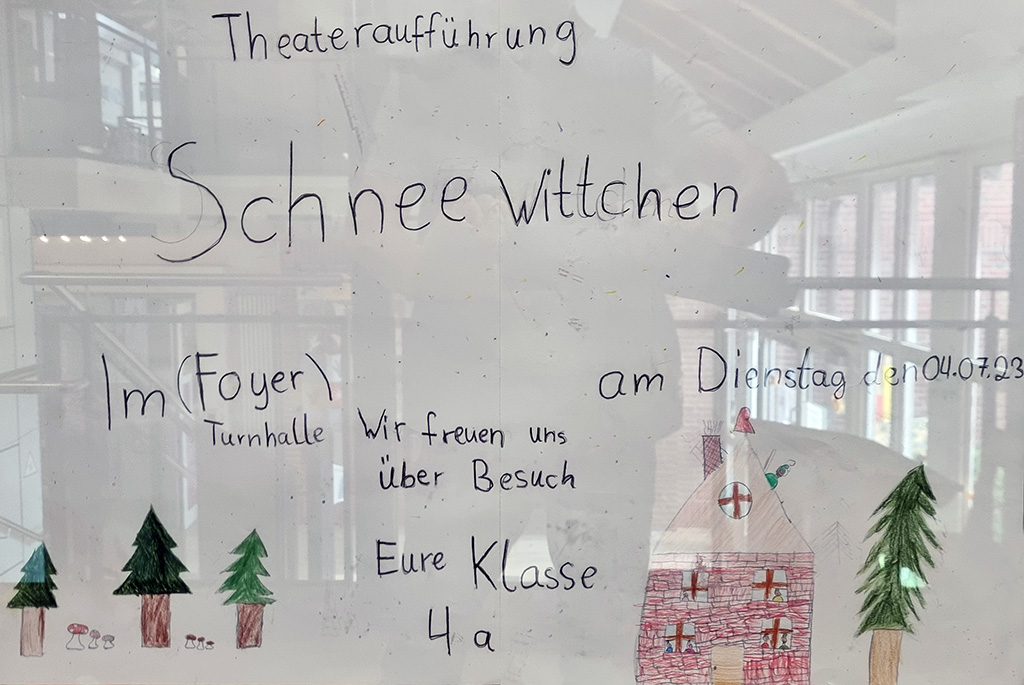 Theateraufführung
Schneewittchen
Im (Foyer) am Dienstag den 04.07.23
Turnhalle
Wir freuen uns
über Besuch
Eure Klasse
4a